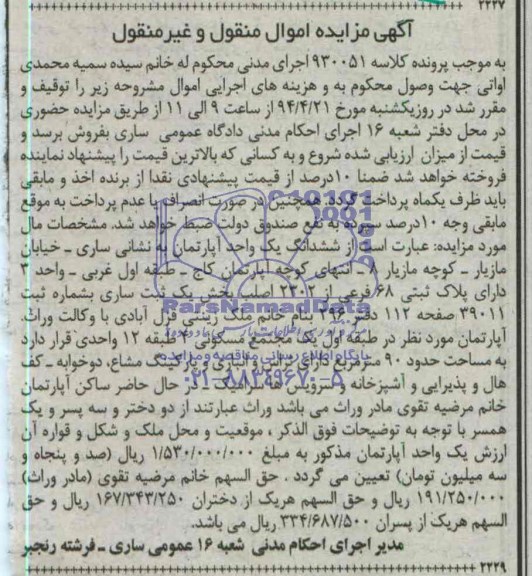 ۲۲۲۷
آگهی مزایده اموال منقول و غیرمنقول
به موجب پرونده کلاسه ۹۳۰۰۵۱ اجرای مدنی محکوم له خانم سیده سمیه محمدی
اواتی جهت وصول محکوم به و هزینه های اجرایی اموال مشروحه زیر را توقیف و
مقرر شد در روزیکشنبه مورخ ۹۴/۴/۲۱ از ساعت ۹ الی ۱۱ از طریق مزایده حضوری
در محل دفتر شعبه ۱۶ اجرای احکام مدنی دادگاه عمومی ساری بفروش برسد و
قیمت از میزان ارزیابی شده شروع و به کسانی که بالاترین قیمت را پیشنهاد نماینده
فروخته خواهد شد ضمنا ۱۰درصد از قیمت پیشنهادی نقدا از برنده اخذ و مابقی
باید ظرف یکماه پرداخت گردد. همچنین در صورت انصراف یا عدم پرداخت به موقع
مابقی وجه ۱۰درصد سپرده به نفع صندوق دولت ضبط خواهد شد. مشخصات مال
مورد مزایده: عبارت است از ششدانگ یک واحد آپارتمان به نشانی ساری ـ خیابان
مازیار ـ کوچه مازیار ۸ ـ انتهای کوچه آپارتمان کاج ـ طبقه اول غربی ـ واحد ۳
دارای پلاک ثبتی ۶۸ فرعی از ۲۳۰۲ اصلی بخش یک ثبت ساری بشماره ثبت
۳۹۰۱۱ صفحه ۱۱۲ دفتر ۲۹۶ بنام خانم ملک زمینی قزل آبادی با وکالت وراث.
آپارتمان مورد نظر در طبقه اول یک مجتمع مسکونی ۴ طبقه ۱۲ واحدی قرار دارد
به مساحت حدود ۹۰ مترمربع دارای انباری و پارکینگ مشاع، دوخوابه ـ کف
هال و پذیرایی و آشپزخانه وسرویس ها سرامیک ـ در حال حاضر ساکن آپارتمان
خانم مرضیه تقوی مادر وراث می باشد وراث عبارتند از دو دختر و سه پسر و یک
همسر با توجه به توضیحات فوق الذکر ، موقعیت و محل ملک و شکل و قواره آن
ارزش یک واحد آپارتمان مذکور به مبلغ ۱/۵۳۰/۰۰۰/۰۰۰ ریال (صد و پنجاه و
سه میلیون تومان) تعیین می گردد . حق السهم خانم مرضیه تقوی (مادر وراث)
۱۹۱/۲۵۰/۰۰۰ ریال و حق السهم هریک از دختران ۱۶۷/۳۴۳/۲۵۰ ریال و حق
السهم هریک از پسران ۳۳۴/۶۸۷/۵۰۰ ریال می باشد.
مدیر اجرای احکام مدنی شعبه ۱۶ عمومی ساری ـ فرشته رنجبر
۲۲۲۹
ParsNamadData
پایگاه اطلاع رسانی مناقصه و مزایده
۰۲۱-۸۸۳۴۹۶۷۰-۵